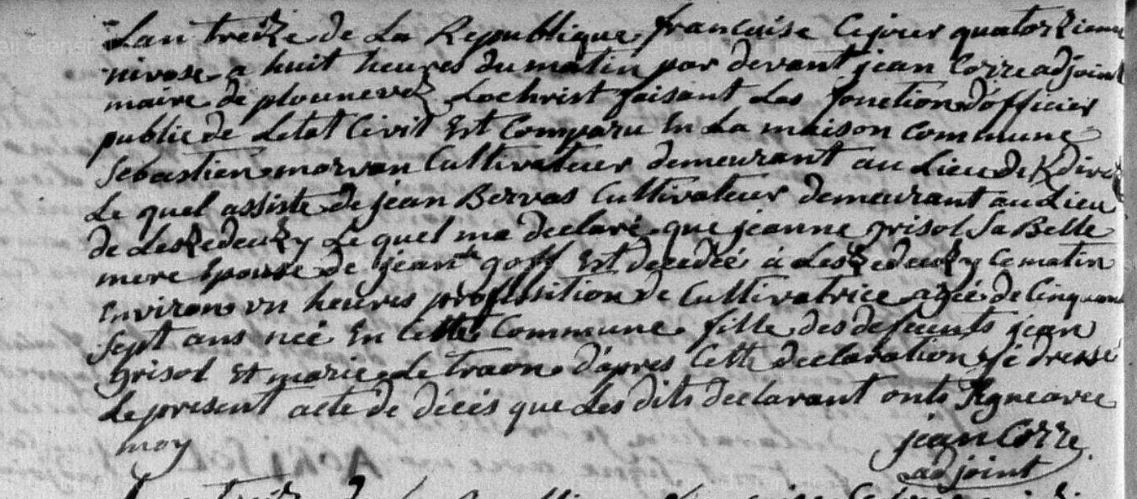 Lan treize de La Republique francaise Cejour quatorzieme
nivose a huit heures du matin par devant jean Corre adjoint
maire de plounevez Lochrist faisant Les fonction d'officier
public de Letat Civil Est Comparu En La maison Commune
Sebastien morvan Cultivateur demeurant au Lieu de
Le quel assiste de jean Bervas Cultivateur demeurant au Lieu
de Leszedeuzy Le quel ma declaré que jeanne grisol Sa Belle
mere Epouse de jean le goff Est decedée à Leszedeuzy Ce matin
Environ un heures proffesition de Cultivatrice agée de Cinquante
Sept ans neé En Cette Commune fille des defeunts jean
grisol Et marie Le traon d'apres Cette declaration j'é dressé
Le present acte de décès que Les dits declarant onts Signe avec
moy
jean Corre
adjoint